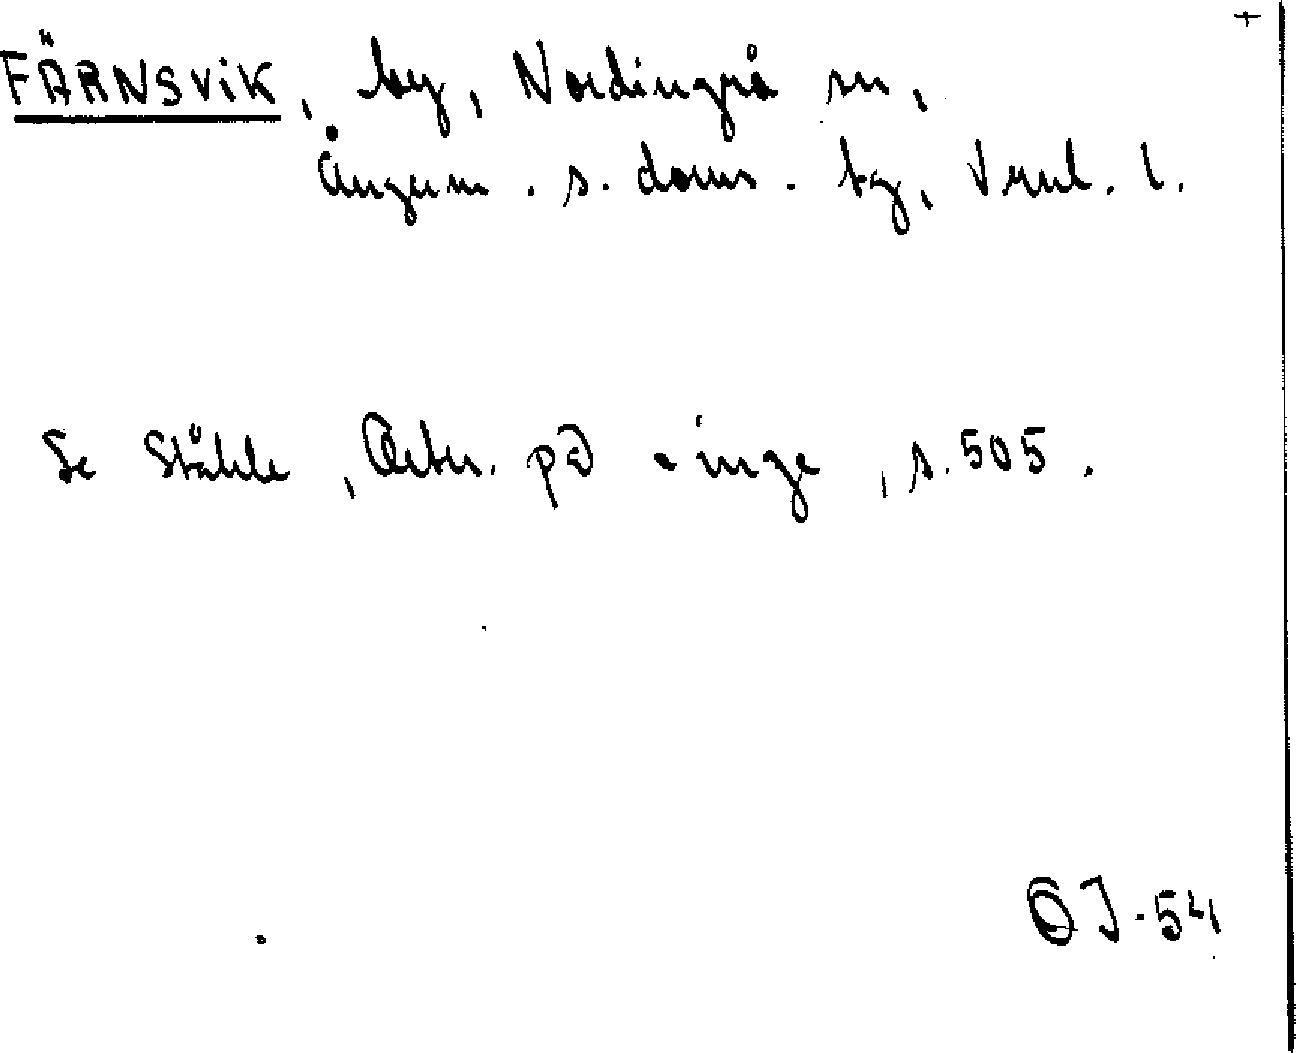 +
FÄRNSVIK, by, Nordingrå sn,
Ångerm. s. doms. tg, Vnl. l.
Se Ståhle, Ortn. på -inge, s. 505.
ÖJ-54